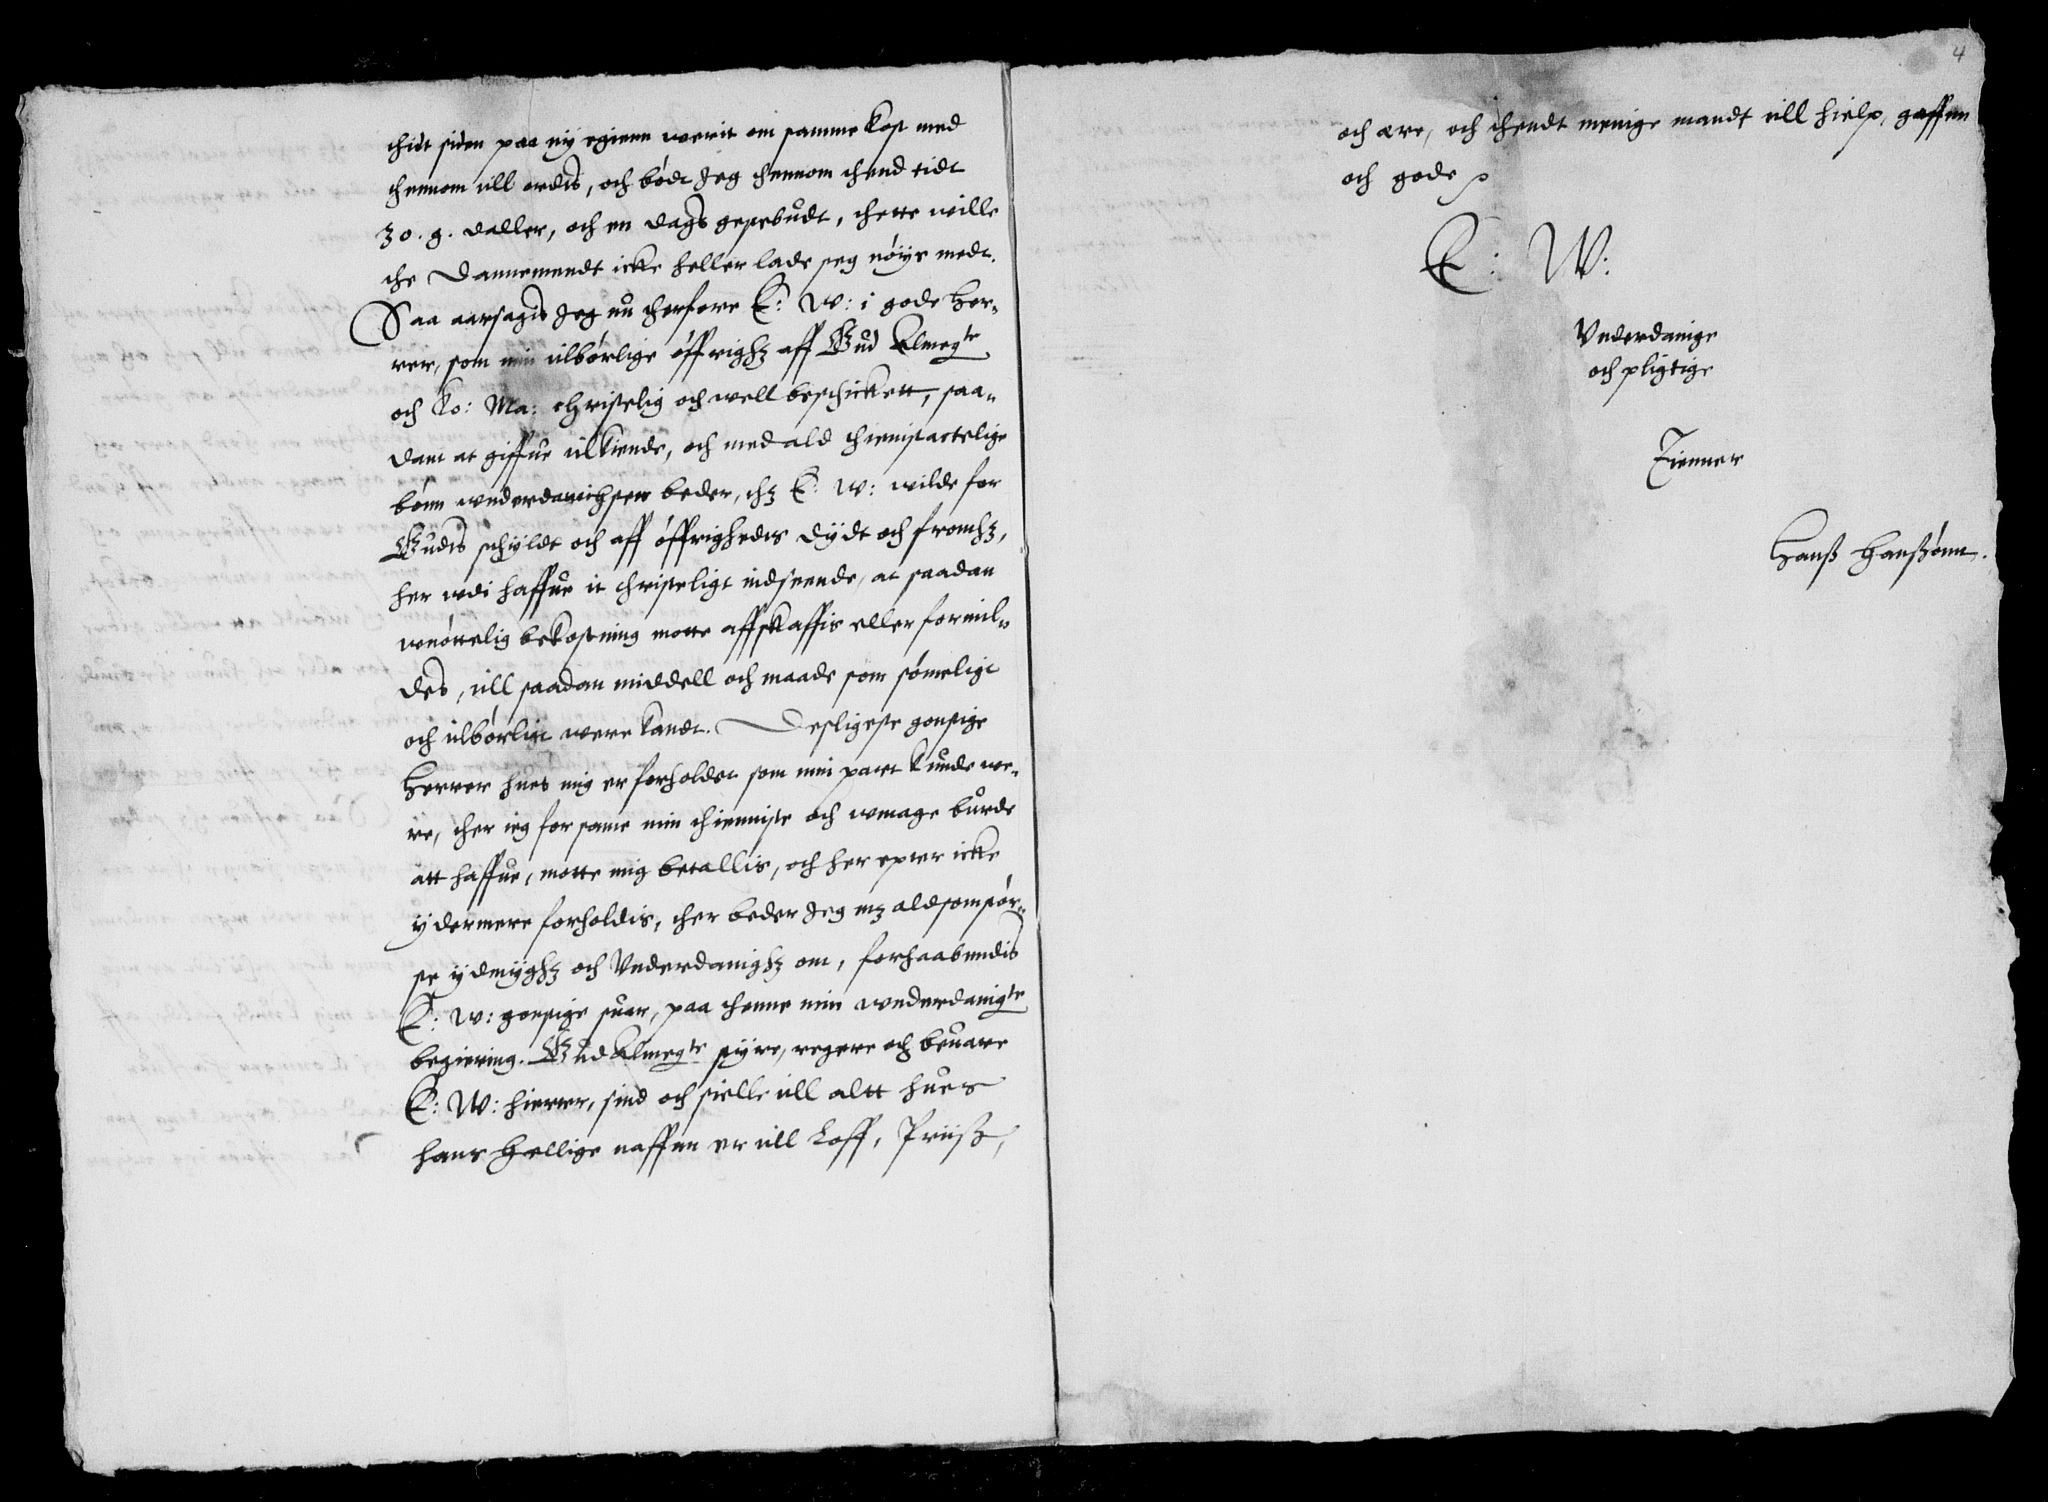 thit siden paa ny igienn werit om samme kost med
thennom till ordts, och bødt Jeg thennom thend tidt
30. g. daller, och en dags gestebudt, thette wille
the Dannemendt icke heller lade seg nøye medt.
Saa aarsagis Jeg nu therfore E: W: i gode Her-
rer, som min tilbørlige øffrighz aff Gud Almegte
och Ko: Ma: christelig och well beschickett, saa-
dant at giffue tilkiende, och med ald thienistactelige
bønn wnderdanichsen beder, thz E: W: wilde for
Gudts schyldt och aff øffrighedts dydt och fromhz,
her wdi haffue it christeligt indseende, at saadan
wnøttelig bekostning motte affskaffis eller formil-
des, till saadan middell och maade som sømeligt
och tilbørligt were kandt. Desligeste gonstige
Herrer hues mig er forholdet som min part kunde we-
re, ther ieg for same min thienniste och wmage burde
att haffue, motte mig betallis, och her epter icke
ydermere forholdis, ther beder Jeg mz aldsomstør-
ste ydmyghz och Vnderdanighz om, forhaabendis
E: W: gonstige suar, paa thenne min wnderdanigte
begiering. Gud Almegte styre, regere och beuare
E: W: hierter, sind och sielle till altt hues
hans Hellige naffnn er till Loff, Priiß,
4
och ære, och thendt menige mandt till hielp, gaffnn
och gode
E: W:
Vnderdanige
och pligtige
Tienner
Hanß Hanßønn.